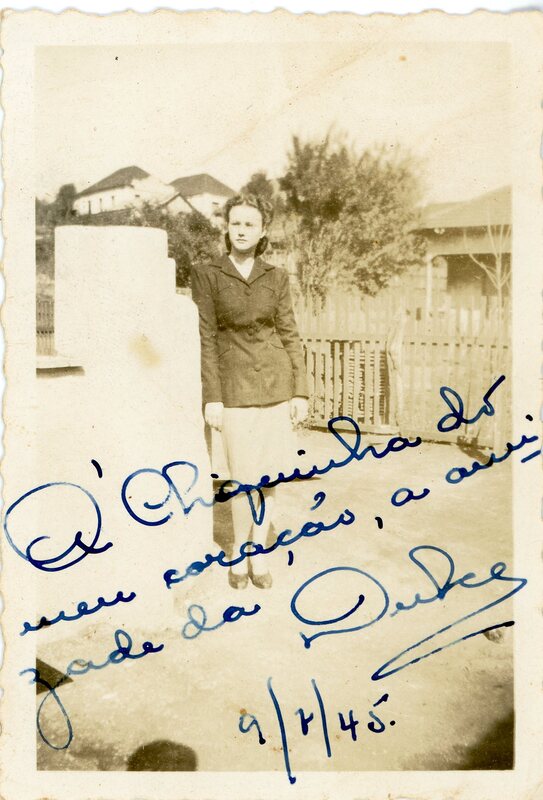 À Chiquinha dó
meu coração, a ami
zade da Dulce
9/7/45.